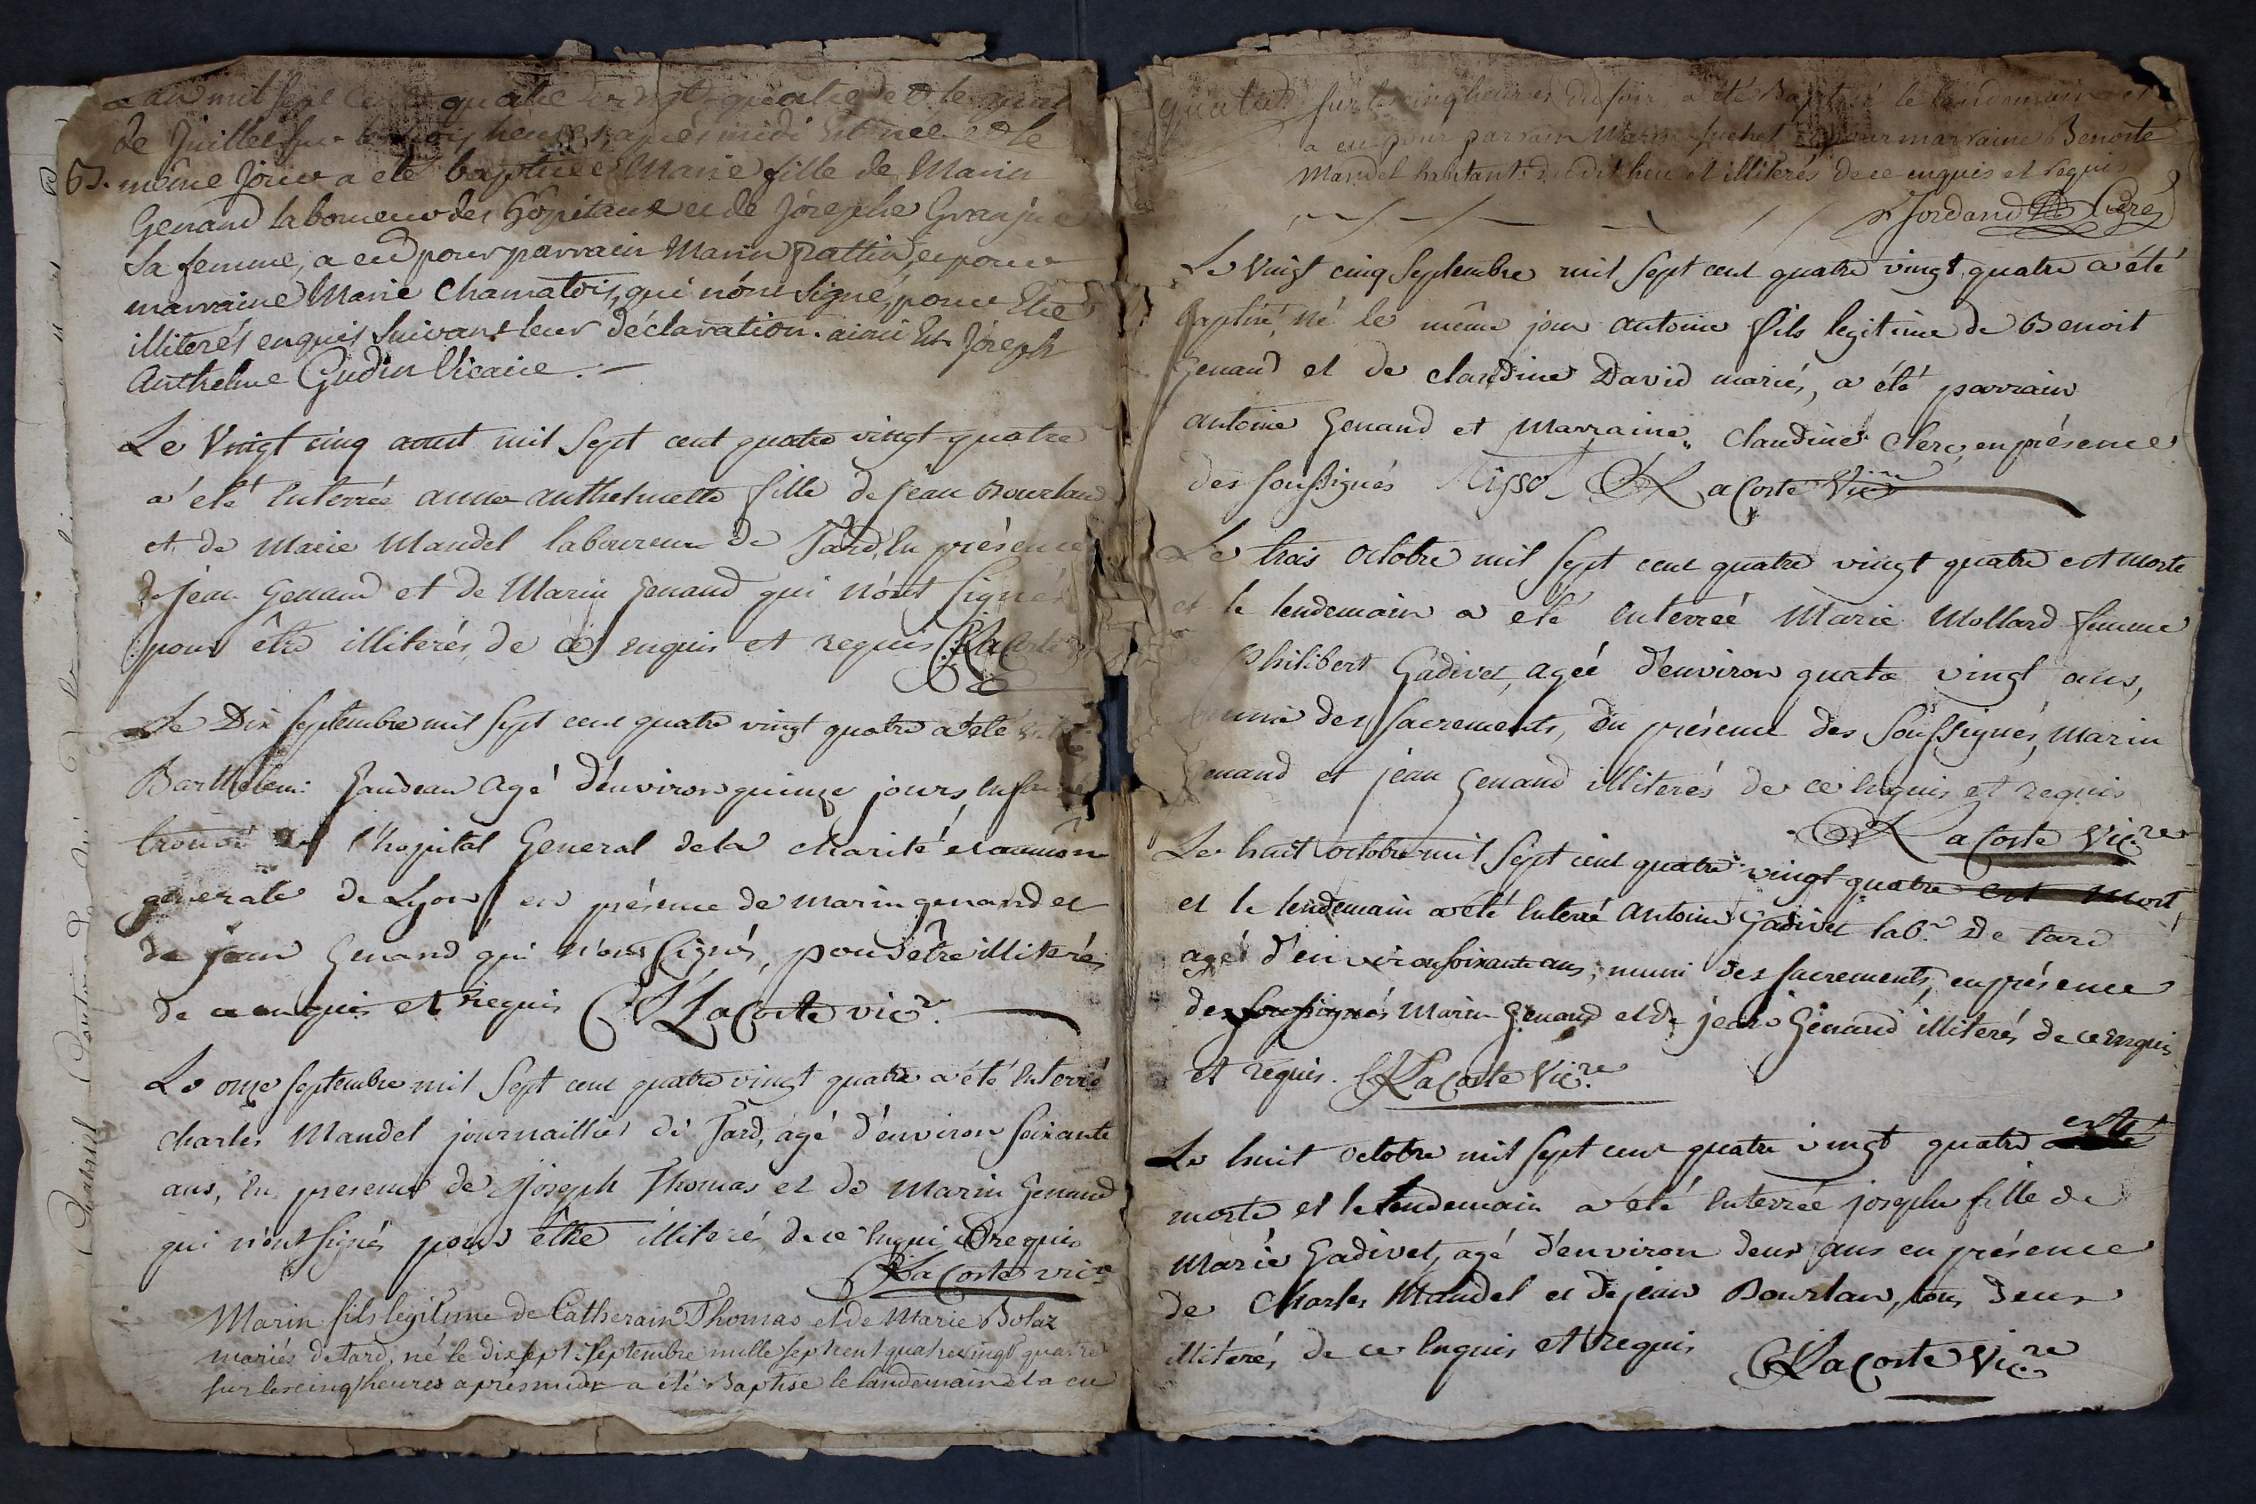 an mil sept cent quatre vingt quatre et le
de Juillet sur heures après midi Est née et le
B. même Jour a été baptisée Marie fille de Marin
Genand laboureur des hôpitaux et de Jósephe Granju
Sa femme, a eu pour parrain Marin et pour
marraine Marie Chamatois, qui n'ónt signé, pour Etre
illiterés enquis Suivant leur déclaration. ainsi Est Jóseph
Anthelme Gudin Vicaire. —
Le Vingt cinq aout mil Sept cent quatre vingt quatre
a été Enterrée anne anthelmette fille de jean Bourlan
et de Marie Mandel laboureur de Tard, En présence
de Jean Genand et de Marin Genand qui n'ónt Signés
pour être illiterés, de ce enquis et requis La Coste
Le Dix Septembre mil Sept cent quatre vingt quatre a été
Barthelemi Gaudeau agé d'environ quinze jours,
trouvé l'hopital General de la charité et aumôn
generale de Lyon, en présence de marin genand et
de jean Genand qui n'ont Signés, pour être illiterés
de ce enquis et requis La Coste vicr.
Le onze Septembre mil Sept cent quatre vingt quatre a été Enterré
Charles Mandel journaillier de Tard, agé d'environ Soixante
ans, En presence de Joseph Thomas et de Marin Genand
qui n'ont Signés pour être illiterés, de ce Enquis et requis
La Coste vicre
Marin fils legitime de Catherain Thomas et de Marie Bolaz
mariés de tard, né le dix sept Septembre mille sept cent quatre vingt quatre
sur les cinq heures après midi a été Baptisé le landemain et a eu
sur les cinq heures du soir a été Baptisé le landemain et
a eu pour parrain Marin Suchet et pour marraine Benoite
Mandel habitants dudit lieu et illiterés de ce enquis et requis
Jordand Curé
Le Vingt cinq Septembre mil Sept cent quatre vingt quatre a été
baptisé, né le même jour antoine fils legitime de Benoit
Genand et de claudine David mariés, a été parrain
antoine Genand et Marraine claudine Clerc, en présence
des soussignés Tissot La Coste Vicre
Le trois octobre mil Sept cent quatre vingt quatre est morte
et le lendemain a été Enterrée Marie Mollard femme
Philibert Gadivet, agée d'environ quatre vingt ans,
munie des Sacrements, En présence des Soussignés, Marin
Genand et jean Genand illiterés de ce Enquis et requis
La Coste Vicre
Le huit octobre mil Sept cent quatre vingt quatre est mort
et le lendemain a été Enterré Antoine Gadivet labr. de tard
agé d'environ soixante ans, muni des sacrements, en présence
des soussignés Marin Genand et de jean Genand illiterés de ce enquis
et requis. La Coste Vicre
Le huit octobre mil Sept cent quatre vingt quatre est
morte et le lendemain a été Enterrée josephe fille de
Marie Gadivet, agé d'environ deux ans en présence
de Charles Mandel et de jean Bourlan, tous deux
illiterés, de ce Enquis et requis La Coste Vicre